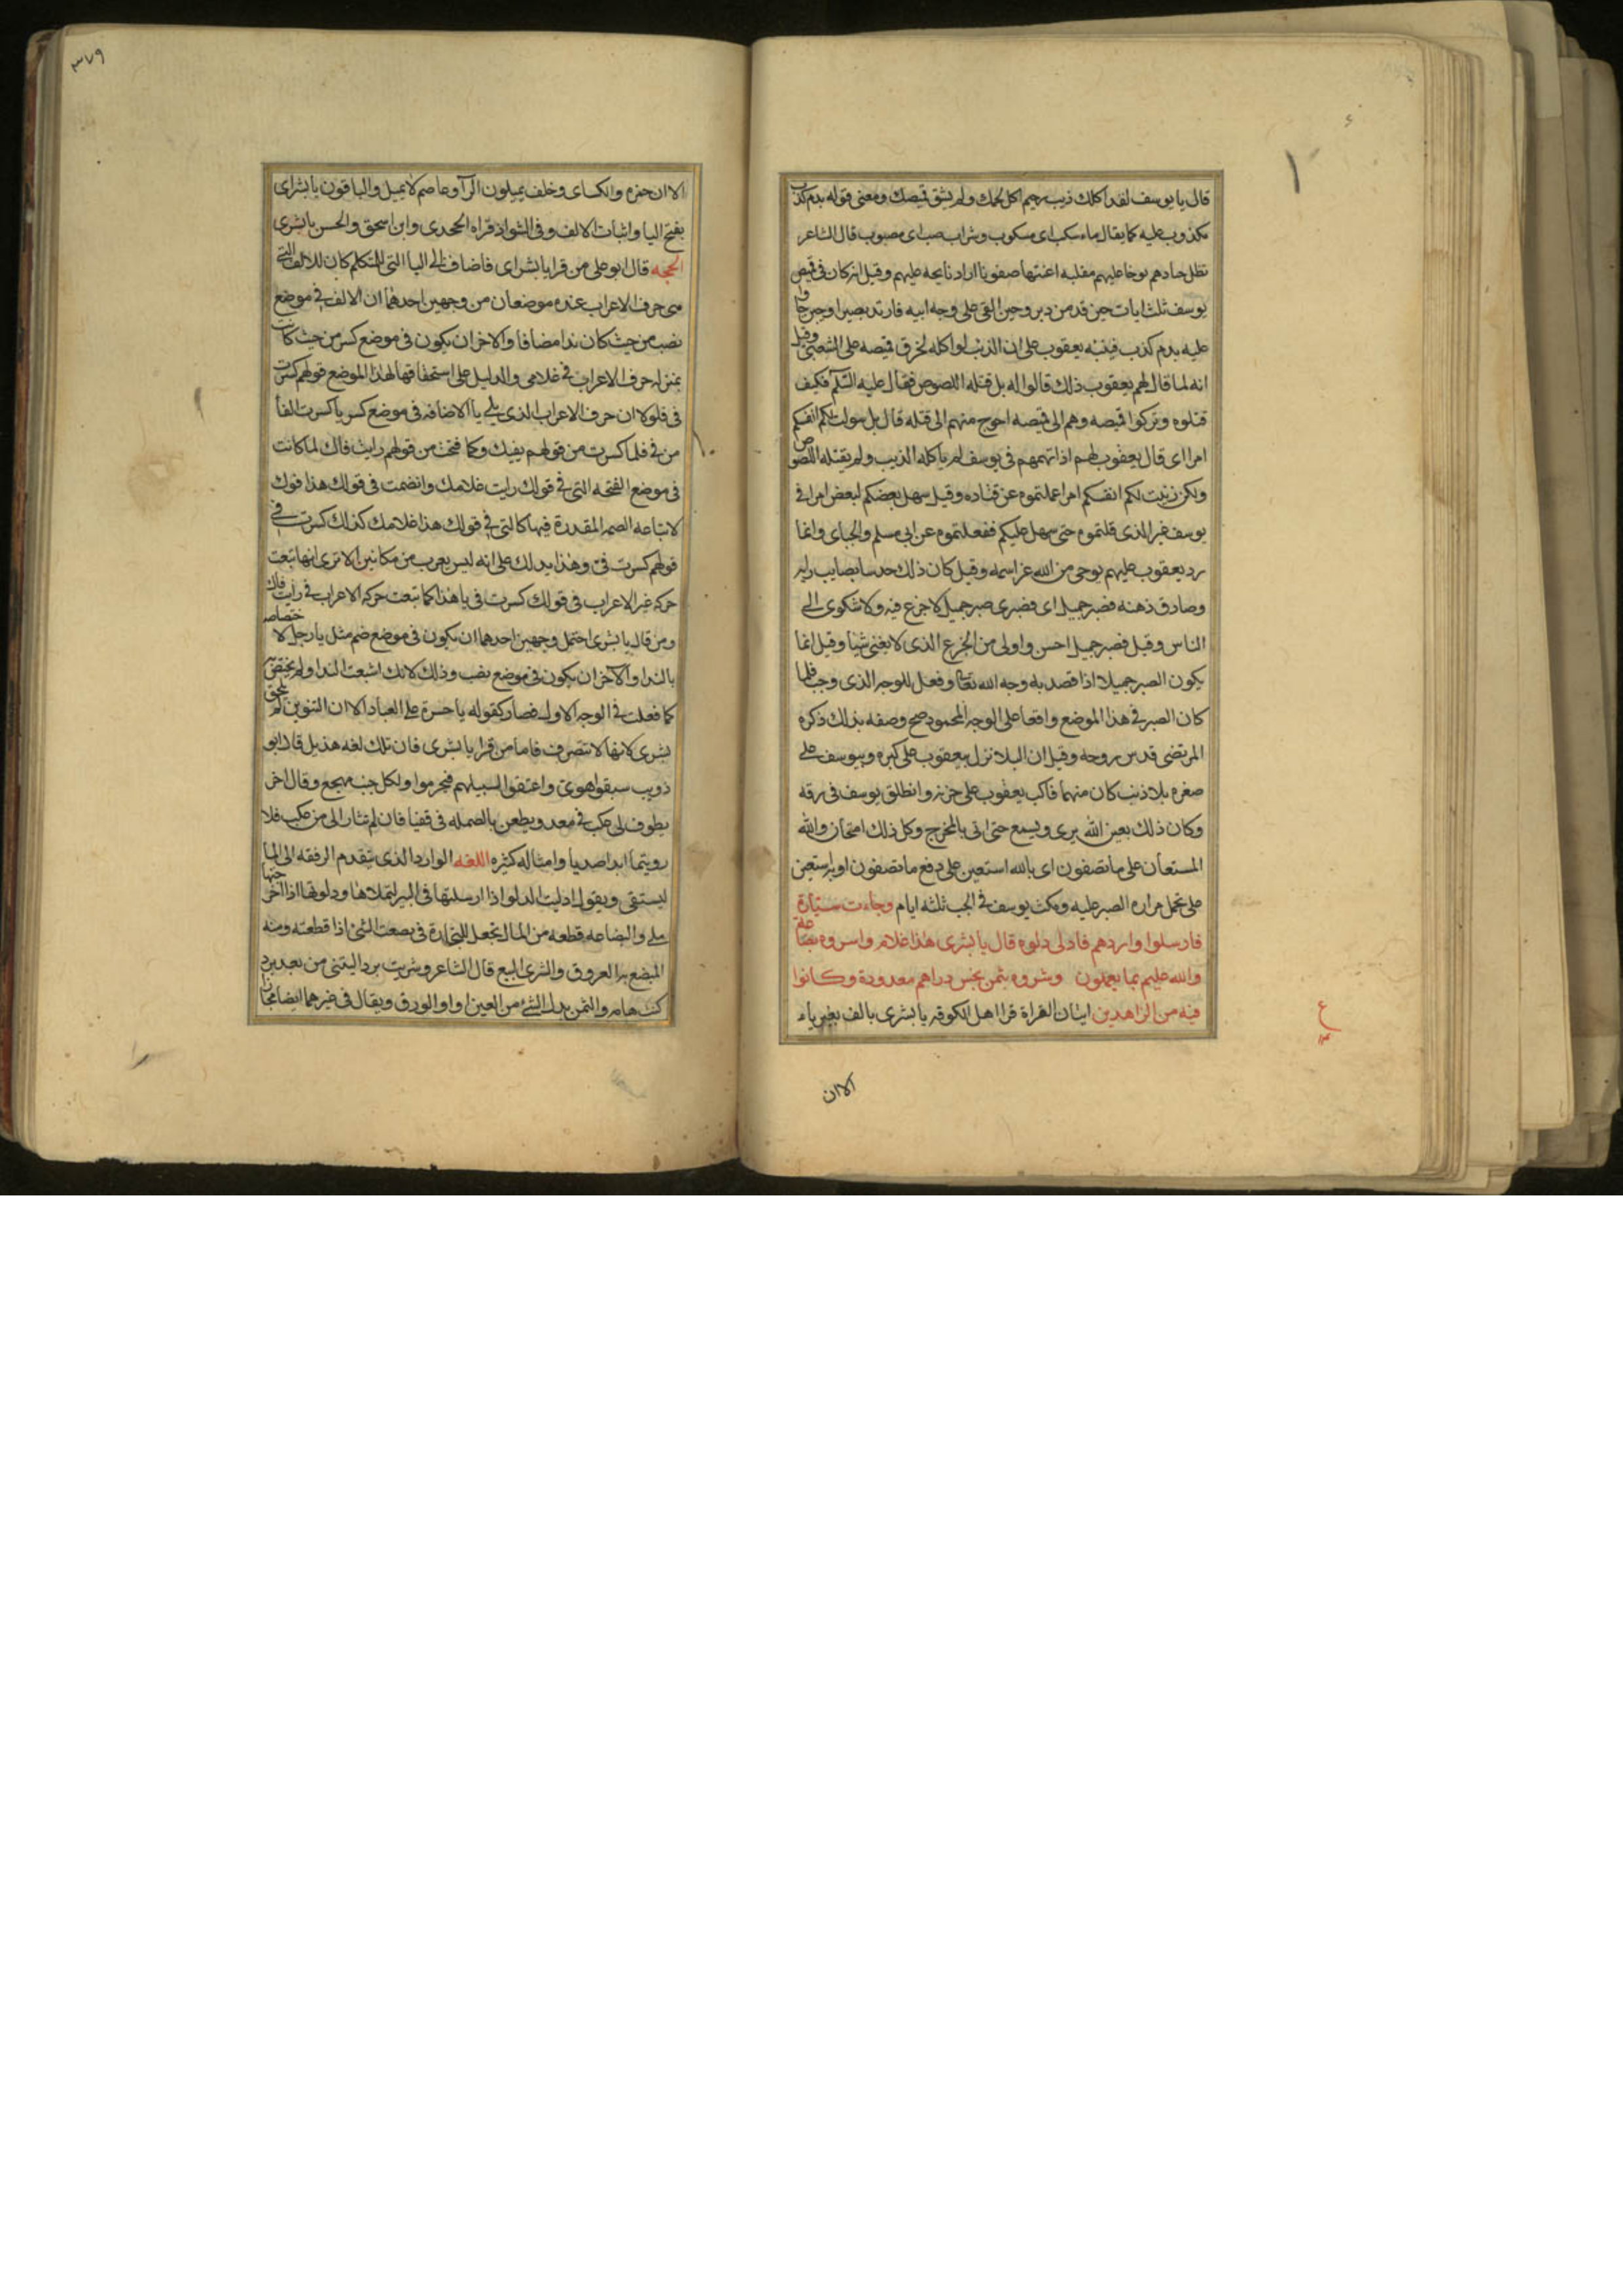 قال يا يوسف لقد اكلك ذيب رحيم اكل لحمك ولم يشق قميصك ومعنى قوله بدم كذب
مكذوب عليه كما يقال ماء سكب اى مسكوب وشراب صب اى مصبوب قال الشاعر
تظل جيادهم نوحا عليهم مقلده اعنتها صفونا اراد نايحه عليهم وقيل انه كان فى قميص
يوسف ثلث ايات حين قد من دبر وحين القى على وجه ابيه فارتد بصيرا وحين جاوا
عليه بدم كذب فينبه يعقوب على ان الذئب لو اكله لخرق قميصه على الشعبى وقيل
انه لما قال لهم يعقوب ذلك قالوا له بل قتله اللصوص فقال عليه السلم فكيف
قتلوه وتركوا قميصه وهم الى قميصه احوج منهم الى قتله قال بل سولت لكم انفسكم
امرا اى قال يعقوب لهم اذا تهمهم فى يوسف لم ياكله الذيب ولم يقتله اللصوص
ولكن زينت لكم انفسكم امرا عملتموه عن قتاده وقيل سهل بعضكم لبعض امرا فى
يوسف غير الذى قلتموه حتى سهل عليكم ففعلتموه عن ابى مسلم والجباى وانما
رد يعقوب عليهم بوحى من الله عز اسمه وقيل كان ذلك حدسا بصايب رايه
وصادق ذهنه فصبر جميل اى فصبرى صبر جميل لا جزع فيه ولا شكوى الى
الناس وقيل فصبر جميل احسن واولى من الجزع الذى لا يغنى شيا وقيل انما
يكون الصبر جميلا اذا قصد به وجه الله تعالى وفعل للوجه الذى وجب فلما
كان الصبر فى هذا الموضع واقعا على الوجه المحمود صح وصفه بذلك ذكره
المرتضى قدس روحه وقيل ان البلا نزل بيعقوب على كبره وبيوسف على
صغره بلا ذنب كان منهما فاكب يعقوب على حزنه وانطلق يوسف فى رقه
وكان ذلك بعين الله يرى ويسمع حتى اتى بالمخرج وكل ذلك امتحان والله
المستعان على ما تصفون اى بالله استعين على دفع ما تصفون او به استعين
على تحمل مراره الصبر عليه ومكث يوسف فى الجب ثلثه ايام وجاءت سيارة
فارسلوا واردهم فادلى دلوه قال يا بشرى هذا غلام واسروه بضاعة
والله عليم بما يعملون وشروه بثمن بخس دراهم معدودة وكانوا
فيه من الزاهدين ايتان القراة قرا اهل الكوفه يا بشرى بالف بغير ياء
الا ان
٣٧٩
الا ان حمزه والكساى وخلف يميلون الرآ وعاصم لا يميل والباقون يا بشراى
بفتح اليا واثبات الالف وفى الشواذ قراه الجحدرى وابن اسحق والحسن يا بشرى
الحجه قال ابو على من قرا يا بشراى فاضاف الى اليا التى للمتكلم كان للالف التى
هى حرف الاعراب عنده موضعان من وجهين احدهما ان الالف فى موضع
نصب من حيث كان ندا مضافا والاخر ان يكون فى موضع كسر من حيث كانت
بمنزله حرف الاعراب فى غلامى والدليل على استحقاقها لهذا الموضع قولهم كسرت
فى فلولا ان حرف الاعراب الذى يلى يا الاضافه فى موضع كسر يا كسرت الفا
من فى فلما كسرت من قولهم بفيك وكما فتحت من قولهم رايت فاك لما كانت
فى موضع الفتحه التى فى قولك رايت غلامك وانضمت فى قولك هذا فوك
لاتباعه الضمه المقدرة فيها كالتى فى قولك هذا غلامك كذلك كسرت فى
قولهم كسرت فى وهذا يدلك على انه ليس يعرب من مكانين الا ترى انها تبعت
حركه غير الاعراب فى قولك كسرت فى يا هذا كما تبعت حركه الاعراب فى رايت فاك
ومن قال يا بشرى احتمل وجهين احدهما ان يكون فى موضع ضم مثل يا رجل لاختصاصه
بالندا والاخر ان يكون فى موضع نصب وذلك لانك اشبعت الندا ولم يختص
كما فعلت فى الوجه الاول فصار كقوله يا حسرة على العباد الا ان التنوين لم يلحق
بشرى لانها لا تتصرف فاما من قرا يا بشرى فان تلك لغه هذيل قال ابو
ذويب سبقوا هوى واعنقوا لسبيلهم فتخرموا ولكل جنب مصرع وقال اخر
يطوف بى عكب فى معد ويطعن بالصمله فى قفيا فان لم تثارا لى من عكب فلا
رويتما ابدا صديا وامثاله كثيره اللغه الوارد الذى يتقدم الرفقه الى الما
ليستقى ويقول ادليت الدلو اذا ارسلتها فى البير لتملاها ودلوتها اذا اخرجتها
ملى والبضاعه قطعه من المال تجعل للتجارة فى بضعت الشئ اذا قطعته ومنه
المبضع به العروق والشرى البيع قال الشاعر وشريت بردا ليتنى من بعد برد
كنت هامه والثمن بدل الشئ من العين او الورق ويقال فى غيرهما ايضا مجازا